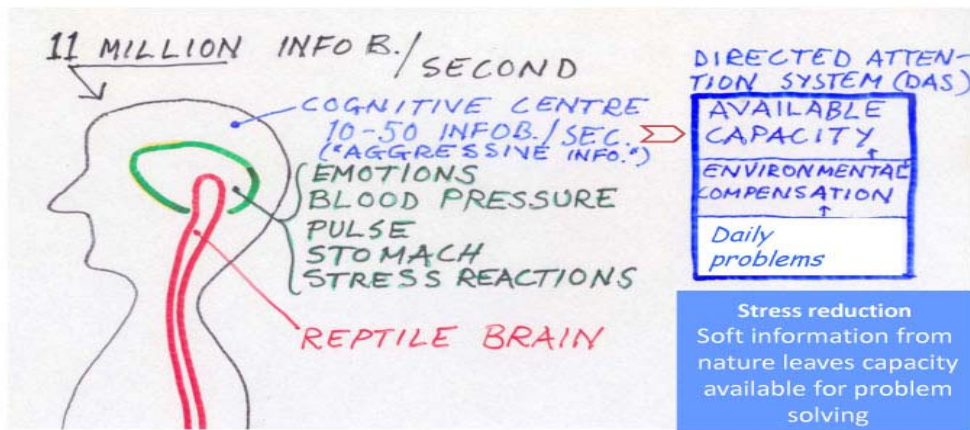 11 MILLION INFO B./SECOND
COGNITIVE CENTRE
10-50 INFOB./SEC.
("AGGRESSIVE INFO.")
EMOTIONS
BLOOD PRESSURE
PULSE
STOMACH
STRESS REACTIONS
REPTILE BRAIN
DIRECTED ATTEN-
TION SYSTEM (DAS)
AVAILABLE
CAPACITY
ENVIRONMENTAL
COMPENSATION
Daily
problems
Stress reduction
Soft information from
nature leaves capacity
available for problem
solving